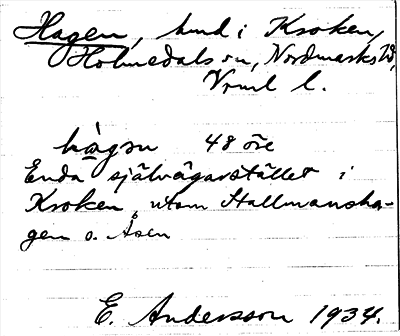 Hagen, hmd i Kroken,
Holmedals sn, Nordmarks hd,
Vrml l.
hàgɔn 48 öre
Enda självägarstället i
Kroken utom Hallmansha-
gen o. Åsen
E. Andersson 1934.